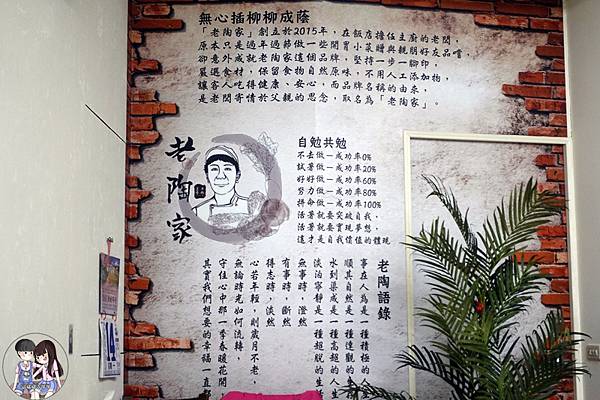 無心插柳柳成蔭
「老陶家」創立於2015年，在飯店擔任主廚的老闆，
原本只是過年過節做一些開胃小菜贈與親朋好友品嚐，
卻意外成就老陶家這個品牌，堅持一步一腳印，
嚴選食材，保留食物自然原味，不用人工添加物，
讓客人吃得健康、安心，而品牌名稱的由來，
是老闆寄情於父親的思念，取名為「老陶家」。
老陶家
自勉共勉
不去做－成功率0%
試著做－成功率20%
好好做－成功率60%
努力做－成功率80%
拼命做－成功率100%
活著就要突破自我，
活著就要實現夢想，
這才是自我價值的體現
老陶語錄
事在人為是一種積極的人
順其自然是一種達觀的生
水到渠成是一種高超的人生
淡泊寧靜是一種超脫的生
無事時，澄然
有事時，斷然
得志時，淡然
心若年輕，則歲月不老，
無論時光如何流轉，
守住心中那一季春暖花開，
其實我們想要的幸福一直都
14